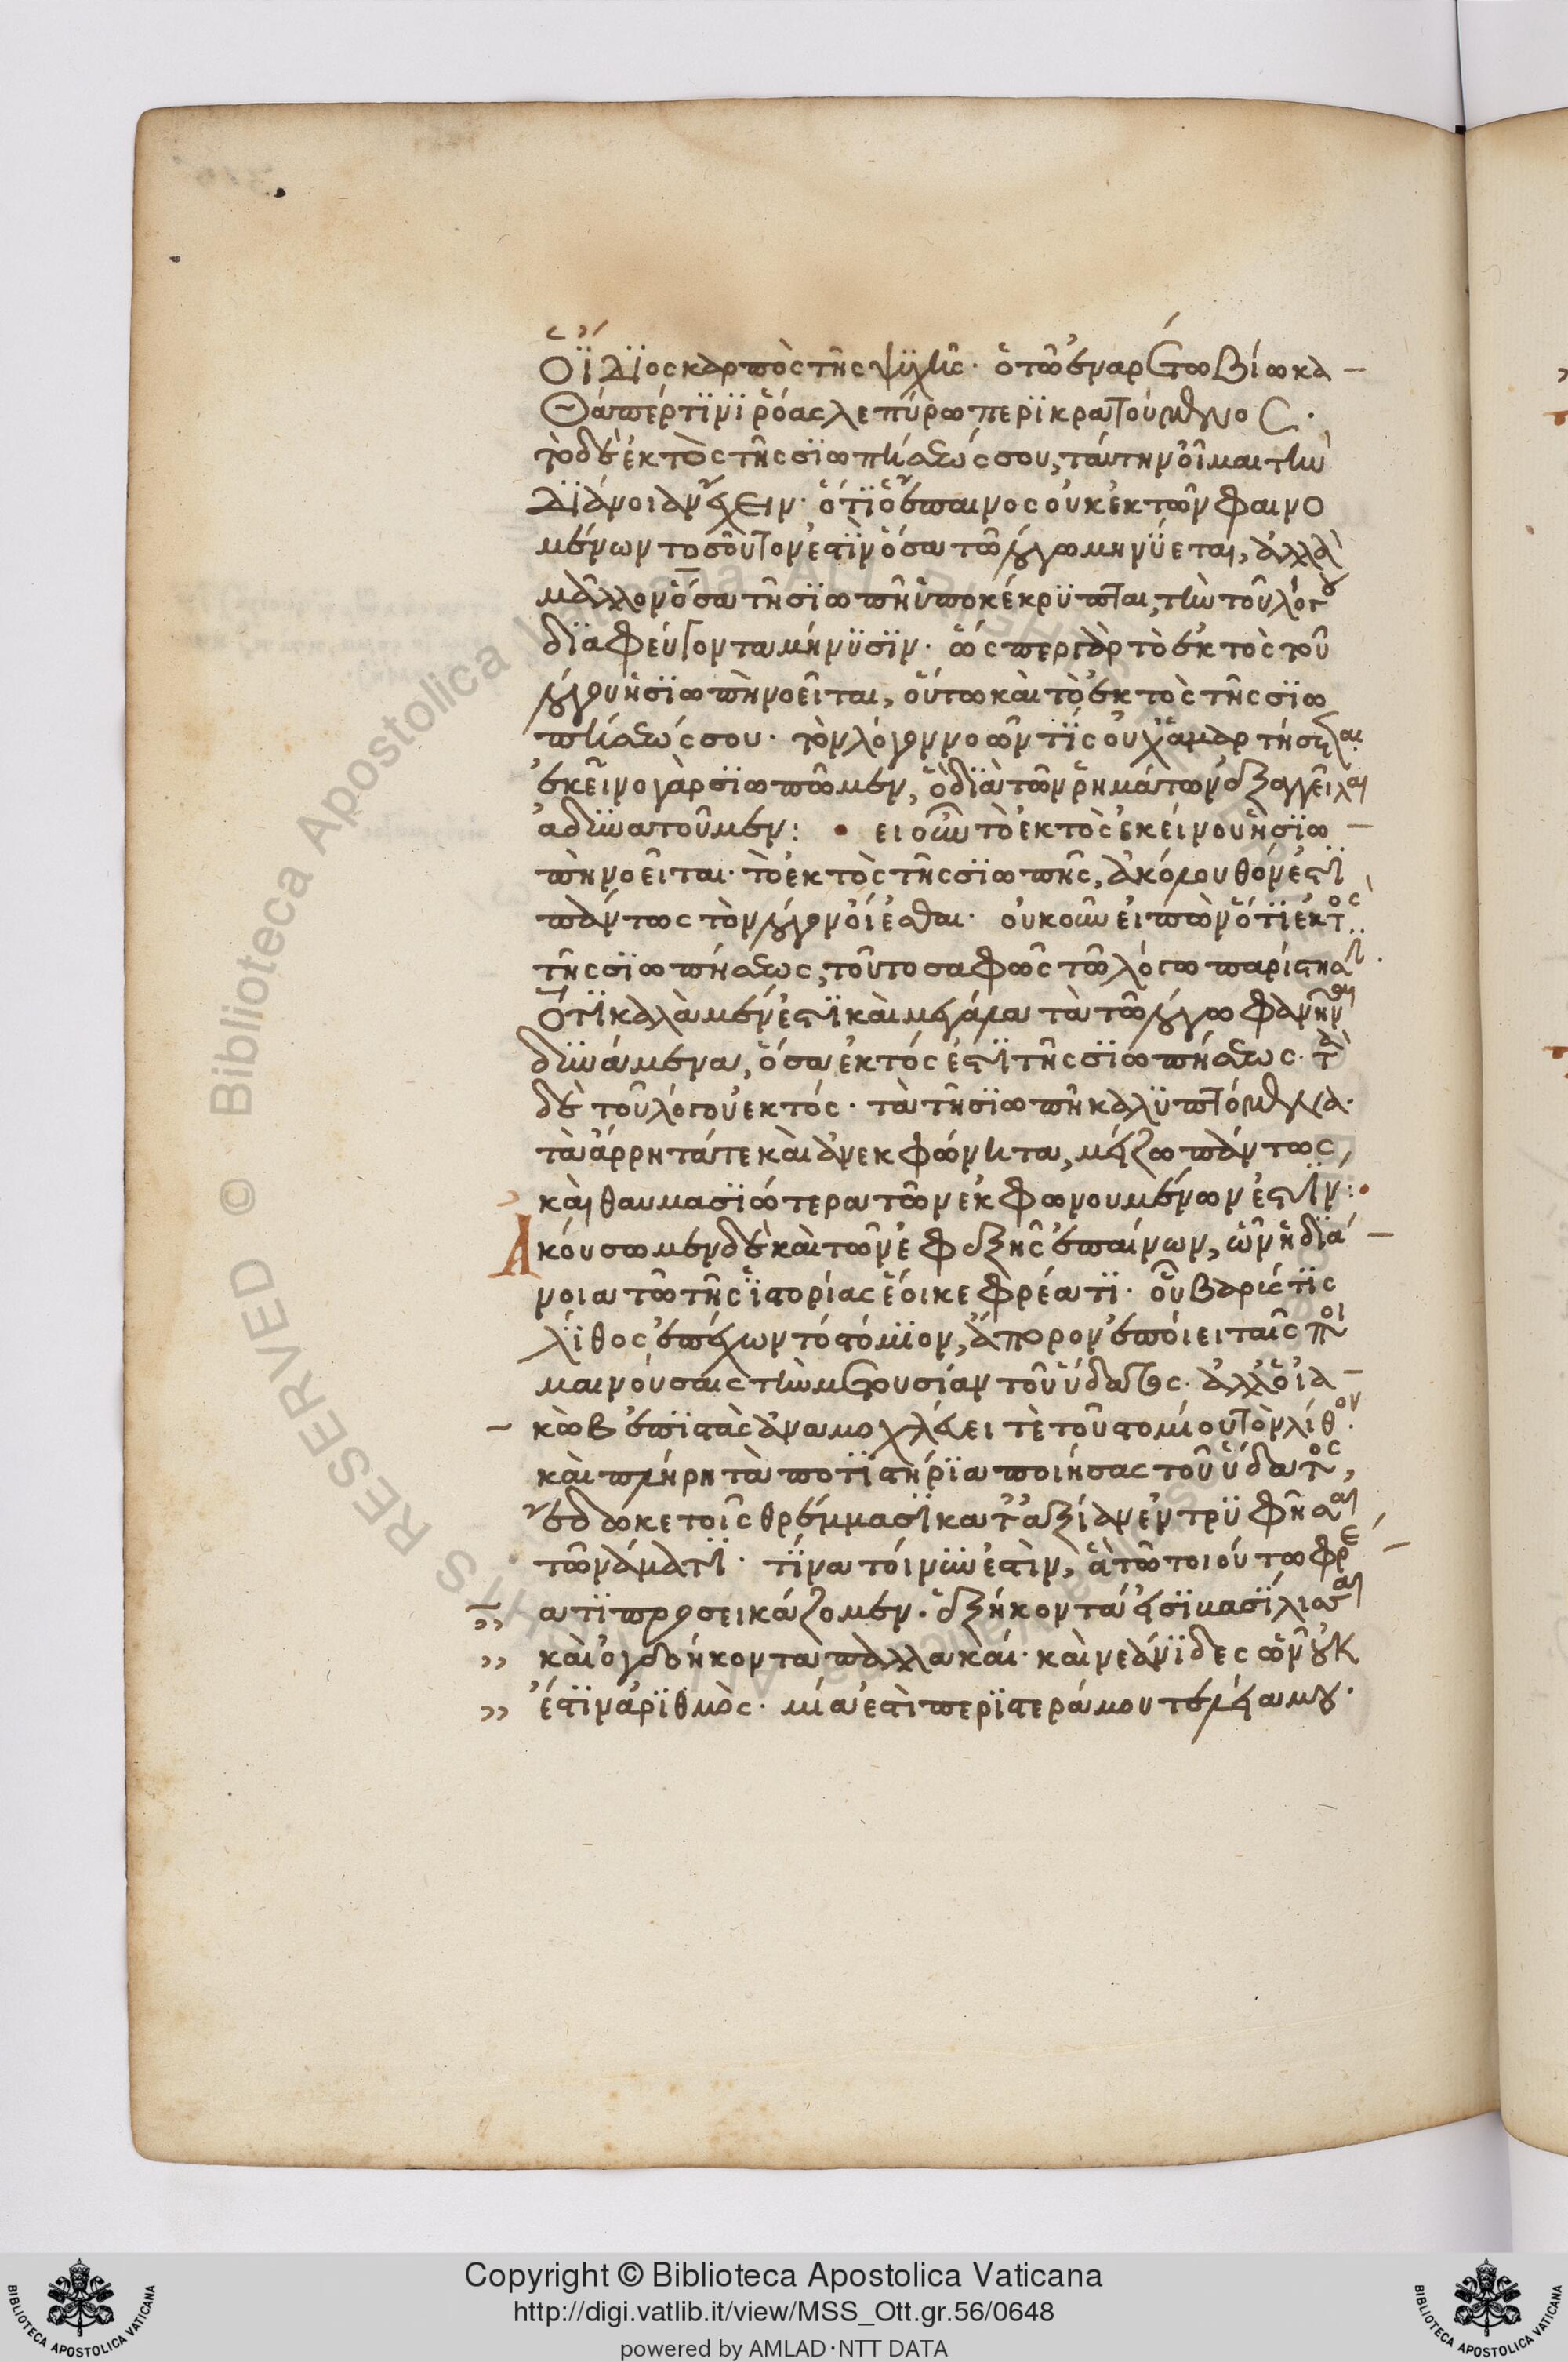 οἴδϊος καρπὸς τῆς ψϋχῆς· ὁ τῶ ἐναρέτω βίω κα –
θάπερ τϊνϊ ῥόας λεπύρω περϊκρατούμενος.
τὸ δὲ ἐκτὸς τῆς σϊωπήσεώς σου, ταύτην οἶμαι τὴν
δϊάνοιαν ἔχειν· ὅτϊ ὁ ἔπαινος οὐκ ἐκ τῶν φαινο
μένων τοσοῦτον ἐστϊν ὅσα τῶ λόγω μηνύεται, ἀλλὰ
μᾶλλον ὅσα τῆ σϊωπῆ ὑποκέκρϋπται, τὴν τοῦ λόγου
δϊαφεύγοντα μήνϋσϊν· ὥσπερ γὰρ τὸ ἐκτὸς τοῦ
λόγου ἡ σϊωπὴ νοεῖται, οὕτω καὶ τὸ ἐκτὸς τῆς σϊω
πήσεώς σου· τὸν λόγον νοῶν τϊς οὐχ ἁμαρτήσεται
ἐκεῖνο γὰρ σϊωπῶμεν, ὃ δϊὰ τῶν ῥημάτων ἐξαγγεῖλαι
ἀδϋνατοῦμεν: • εἰ οὖν τὸ ἐκτὸς ἐκείνου ἡ σϊω –
πὴ νοεῖται· τὸ ἐκτὸς τῆς σϊωπῆς, ἀκόλουθόν ἐστϊ
πάντως τὸν λόγον οἴεσθαι· οὐκοῦν εἰπὼν ὅτϊ ἐκτὸς
τῆς σϊωπήσεως, τοῦτο σαφῶς τῶ λόγω παρίστησι.
Ὅτϊ καλὰ μέν ἐστϊ καὶ μεγάλα τὰ τῶ λόγω φανῆναι
δϋνάμενα, ὅσα ἐκτός ἐστϊ τῆς σϊωπήσεως· τὰ
δὲ τοῦ λόγου ἐκτός· τὰ τῆ σϊωπῆ καλϋπτόμενα·
τὰ ἄρρητά τε καὶ ἀνεκφώνητα, μείζω πάντως,
καὶ θαυμασϊώτερα τῶν ἐκφωνουμένων ἐστϊν:•
Ἀκούσωμεν δὲ καὶ τῶν ἐφεξῆς ἐπαίνων, ὧν ἡ δϊά –
νοια τῶ τῆς ἱστορίας ἔοικε φρέατϊ· οὗ βαρύς τϊς
λϊθος ἐπέχων τὸ στόμϊον, ἄπορον ἐποίει ταῖς ποι
μαινούσαις τὴν μετουσίαν τοῦ ὕδατος· ἀλλ' ὁ ἰα –
κὼβ ἐπϊστὰς ἀναμοχλεύει τὲ τοῦ στομίου τὸν λίθον.
καὶ πλήρη τὰ ποτϊστήρϊα ποιήσας τοῦ ὕδατος,
ἔδωκε τοῖς θρέμμασϊ κατ' ἀξίαν ἐντρϋφῆσαι
τῶ νάματϊ· τϊνα τοίνυν ἐστὶν, ἃ τῶ τοιούτω φρέ –
ατϊ προσεικάζομεν. ἑξήκοντά εἰσϊ βασϊλισσαι
καὶ ὀγδοήκοντα παλλακαί· καὶ νεάνϊδες ὧν οὐκ
ἔστϊν ἀρϊθμὸς· μία ἐστὶ περϊστερά μου τελεία μου·
Copyright © Biblioteca Apostolica Vaticana
http://digi.vatlib.it/view/MSS_Ott.gr.56/0648
powered by AMLAD·NTT DATA